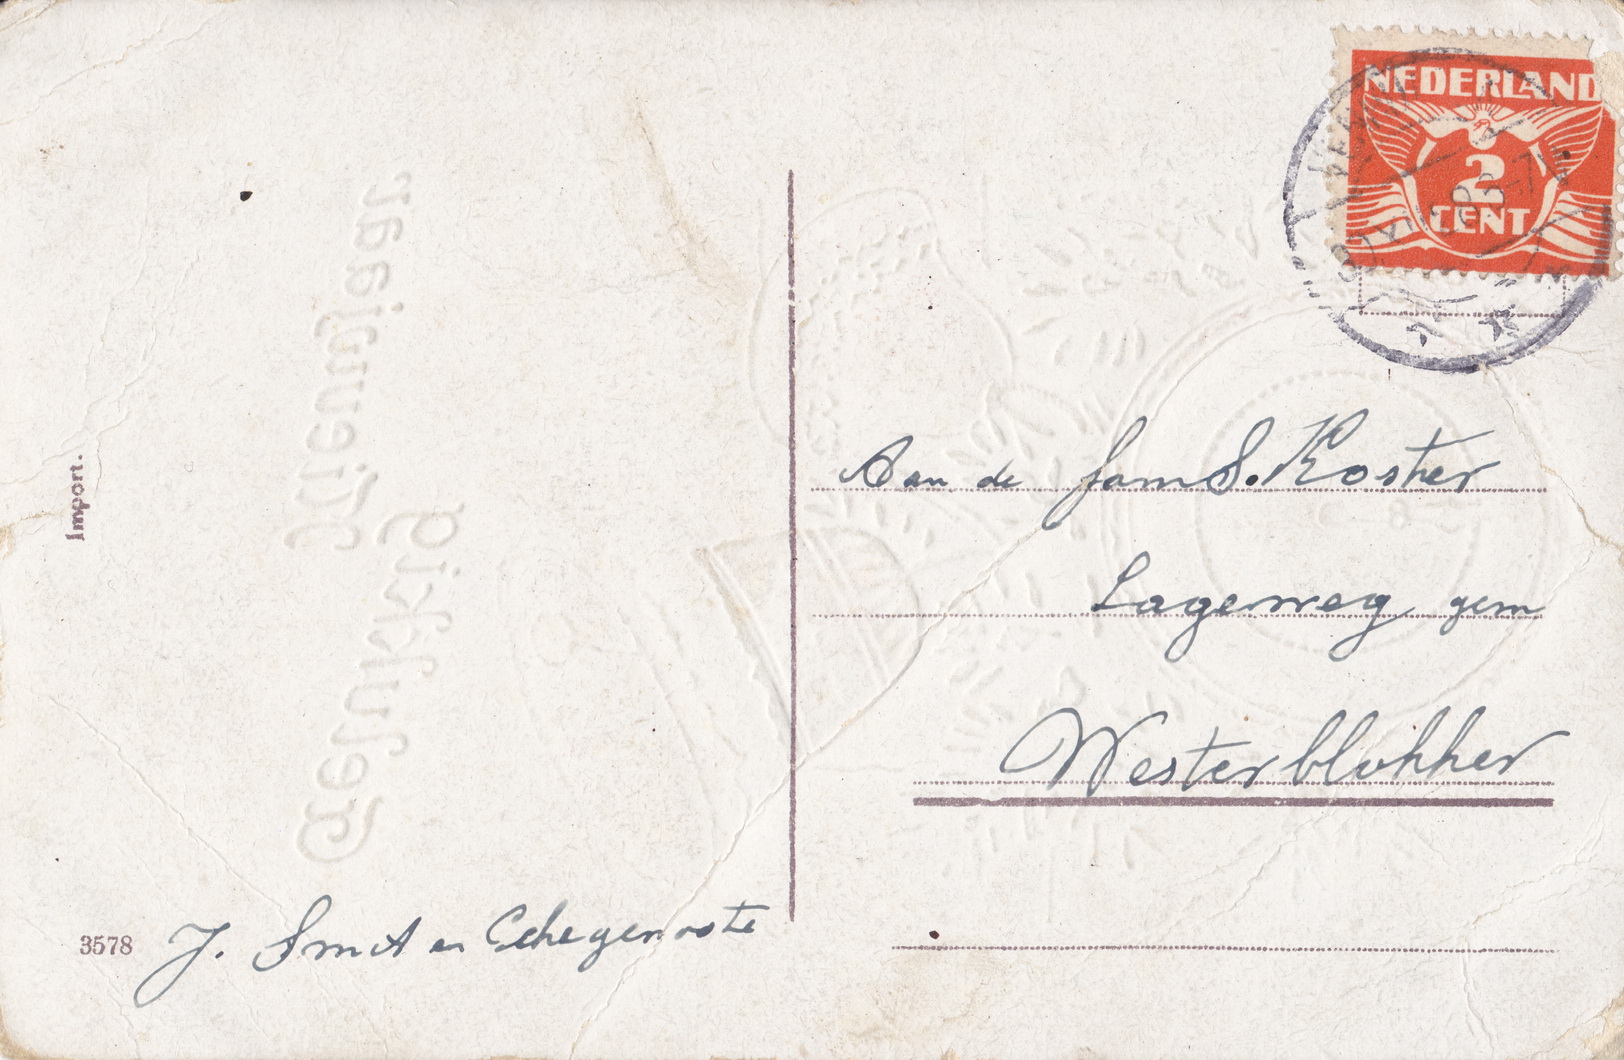 NEDERLAND
2
CENT
Aan de fam S. Koster
Lagerweg gem
Westerblokker
Gelukkig
Nieuwjaar
Import.
3578
J. Smit en Echegenoote